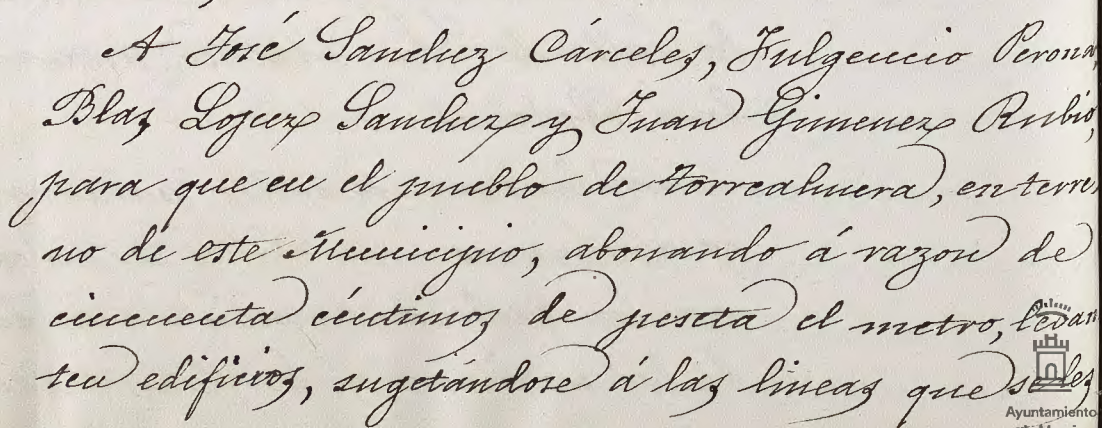 A José Sanchez Cárceles, Fulgencio Perona,
Blas Lopez Sanchez y Juan Gimenez Rubio,
para que en el pueblo de Torrealmera, en terre-
no de este Municipio, abonando á razon de
cincuenta céntimos de peseta el metro, levan
ten edificios, sugetándose á las lineas que se les
Ayuntamiento